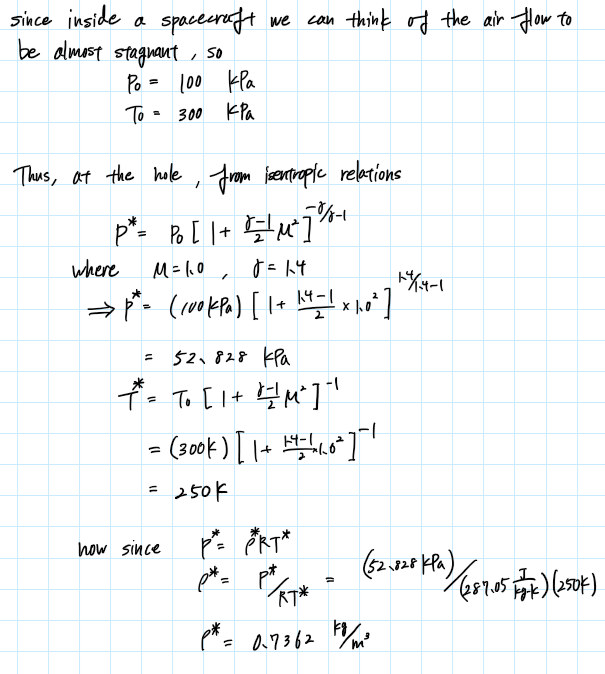 since inside a spacecraft we can think of the air flow to
be almost stagnant, so
P₀ = 100 kPa
T₀ = 300 kPa
Thus, at the hole, from isentropic relations
P* = P₀ [ 1 + (γ-1)/2 M² ]^(-γ/γ-1)
where M = 1.0 , γ = 1.4
⇒ P* = (100 kPa) [ 1 + (1.4-1)/2 × 1.0² ]^(1.4/1.4-1)
= 52.828 kPa
T* = T₀ [ 1 + (γ-1)/2 M² ]^(-1)
= (300K) [ 1 + (1.4-1)/2 × 1.0² ]^(-1)
= 250K
now since P* = ρ*RT*
ρ* = P*/RT* = (52.828 kPa)/(287.05 J/kg·K)(250K)
ρ* = 0.7362 kg/m³